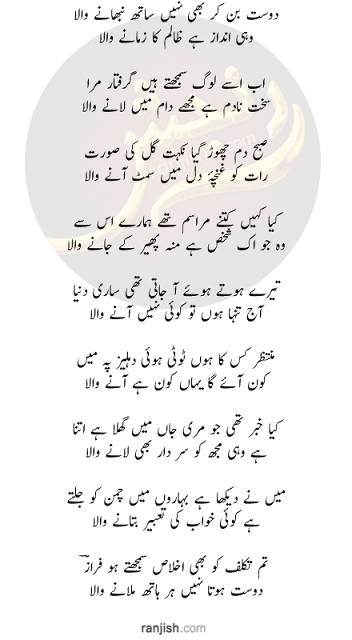 دوست بن کر بھی نہیں ساتھ نبھانے والا
وہی انداز ہے ظالم کا زمانے والا
اب اسے لوگ سمجھتے ہیں گرفتار مرا
سخت نادم ہے مجھے دام میں لانے والا
صبح دم چھوڑ گیا نکہت گل کی صورت
رات کو غنچۂ دل میں سمٹ آنے والا
کیا کہیں کتنے مراسم تھے ہمارے اس سے
وہ جو اک شخص ہے منہ پھیر کے جانے والا
تیرے ہوتے ہوئے آ جاتی تھی ساری دنیا
آج تنہا ہوں تو کوئی نہیں آنے والا
منتظر کس کا ہوں ٹوٹی ہوئی دہلیز پہ میں
کون آئے گا یہاں کون ہے آنے والا
کیا خبر تھی جو مری جاں میں گھلا ہے اتنا
ہے وہی مجھ کو سر دار بھی لانے والا
میں نے دیکھا ہے بہاروں میں چمن کو جلتے
ہے کوئی خواب کی تعبیر بتانے والا
تم تکلف کو بھی اخلاص سمجھتے ہو فرازؔ
دوست ہوتا نہیں ہر ہاتھ ملانے والا
ranjish.com